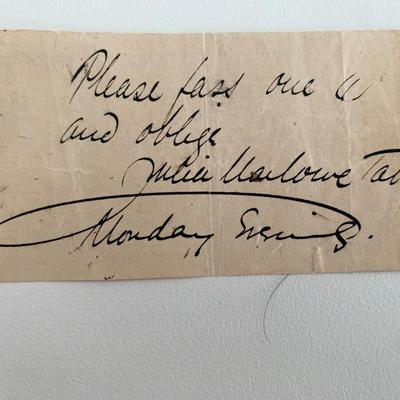 Please pass one (1)
and oblige
Julia Marlowe Ta
Monday Evening.